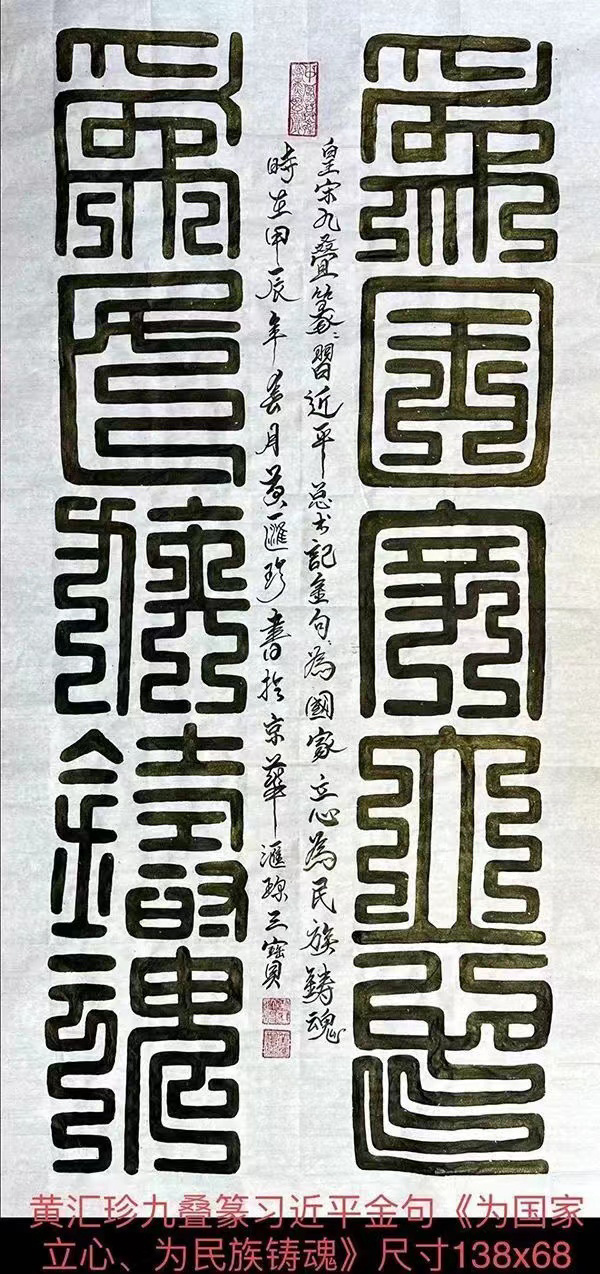 為國家立心
皇宋九疊篆:習近平总书記金句:為國家立心為民族鑄魂
時在甲辰年春月黄匯珍書於京華匯珎三寶
為民族鑄魂
黄汇珍九叠篆习近平金句《为国家
立心、为民族铸魂》尺寸138x68